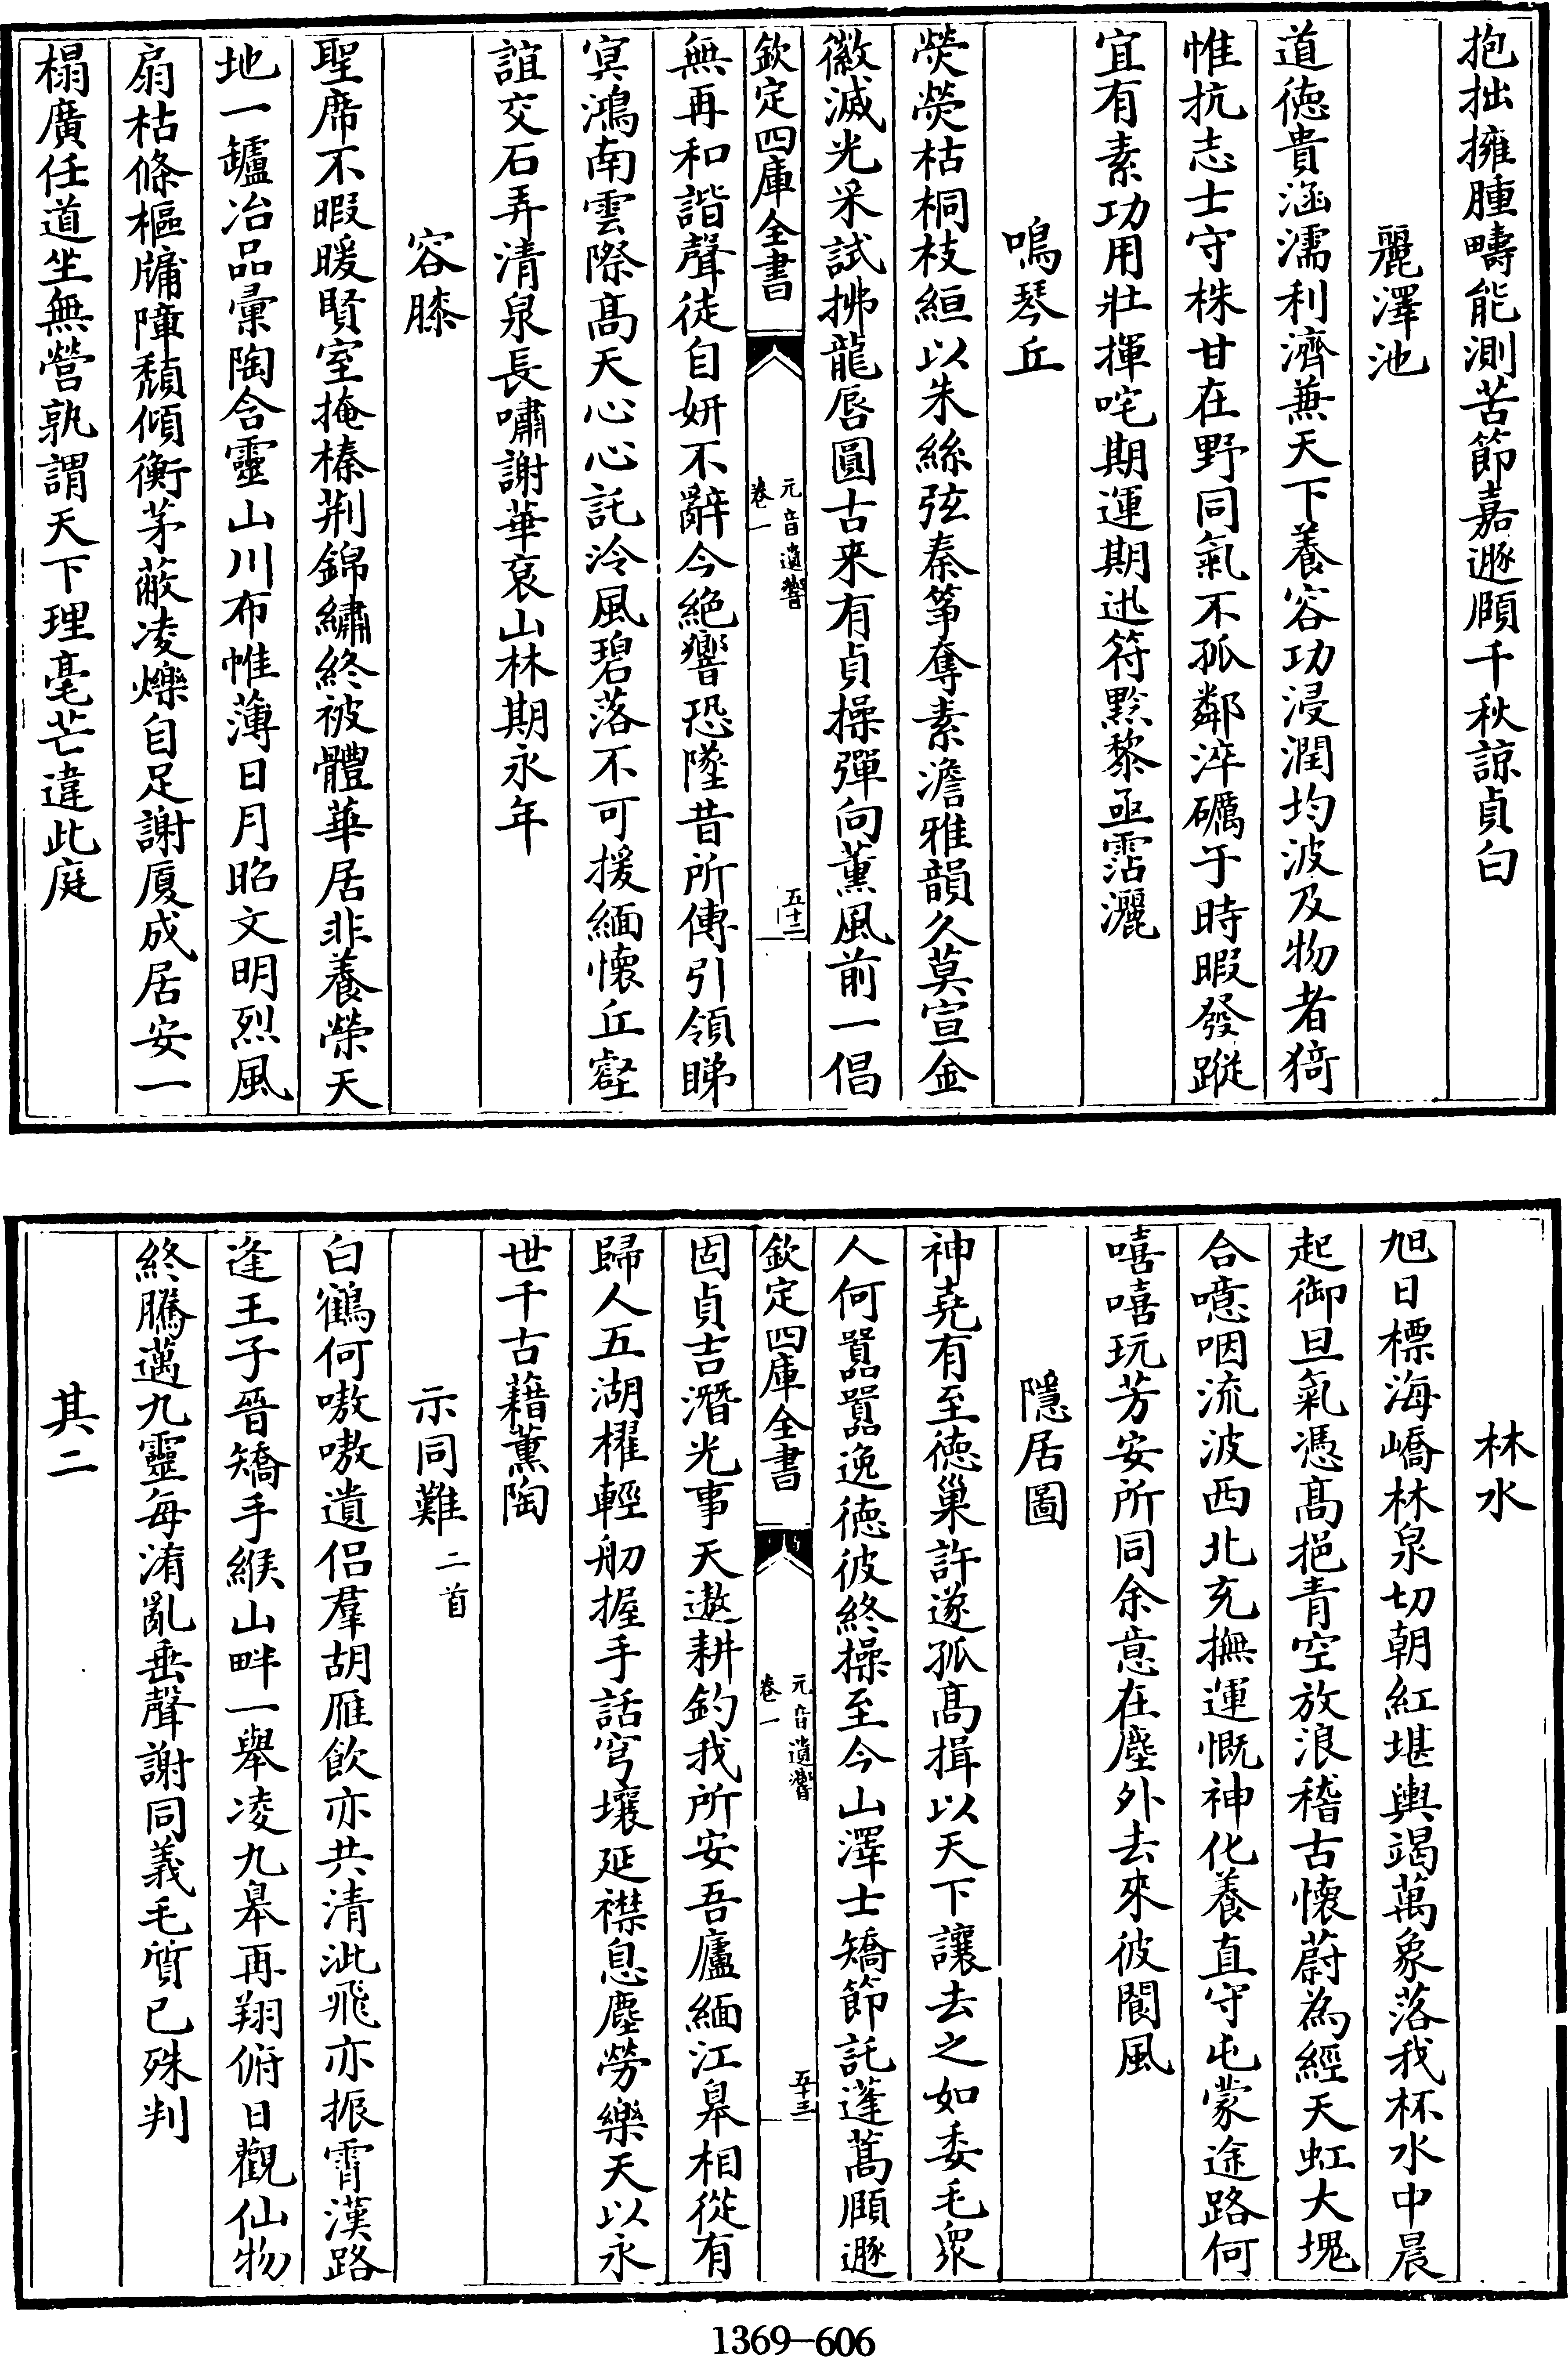 抱拙擁腫疇能測苦節嘉遯頤千秋諒貞白
麗澤池
道徳貴涵濡利濟兼天下養容功浸潤均波及物者猗
惟抗志士守株甘在野同氣不孤鄰淬礪于時暇發蹤
宜有素功用壯揮咤期運期迅符黔黎亟霑灑
鳴琴丘
熒熒枯桐枝絙以朱絲弦秦筝奪素澹雅韻久莫宣金
徽滅光采試拂龍唇圓古来有貞操彈向薫風前一倡
欽定四庫全書
元音遺響
卷一
五十二
無再和諧聲徒自妍不辭今絶響恐墜昔所傳引領睇
冥鴻南雲際髙天心心託泠風碧落不可援緬懷丘壑
誼交石弄清泉長嘯謝華衮山林期永年
容膝
聖席不暇暖賢室掩榛荆錦繡終被體華居非養榮天
地一罏冶品彚陶含靈山川布帷薄日月昭文明烈風
扇枯條樞牗障頽傾衡茅蔽凌爍自足謝厦成居安一
榻廣任道坐無營孰謂天下理毫芒違此庭
林水
旭日標海嶠林泉切朝紅堪輿竭萬象落我杯水中晨
起御旦氣憑髙挹青空放浪稽古懷蔚為經天虹大塊
合噫咽流波西北充撫運慨神化養直守屯蒙途路何
嘻嘻玩芳安所同余意在塵外去來彼閬風
隱居圖
神堯有至徳巢許遂孤髙揖以天下讓去之如委毛衆
人何嚚嚚逸徳彼終操至今山澤士矯節託蓬蒿頤遯
欽定四庫全書
元音遺響
卷一
五十三
固貞吉潛光事天遨耕釣我所安吾廬緬江皋相從有
歸人五湖櫂輕舠握手話穹壤延襟息塵勞樂天以永
世千古藉薫陶
示同難二首
白鶴何嗷嗷遺侣羣胡雁飲亦共清泚飛亦振霄漢路
逢王子晉矯手緱山畔一舉凌九皋再翔俯日觀仙物
終騰邁九靈每洧亂垂聲謝同義毛質已殊判
其二
1369—606